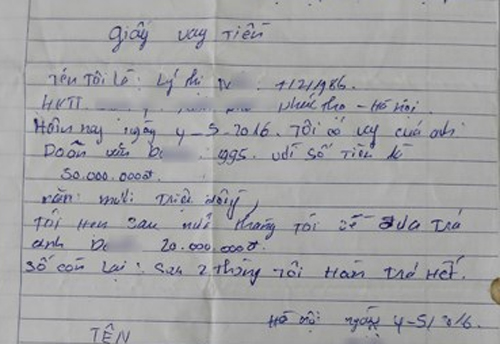 Giấy vay tiền
Tên tôi là: Lý thị N 1985.
HKTT phúc thọ - Hà Nội.
Hôm nay ngày 4-5-2016. Tôi có vay của anh
Doãn văn D 1995. với số tiền là
50.000.000đ.
năm mươi triệu đồng,
Tôi hẹn sau một tháng tôi sẽ đưa trả
anh Do 20.000.000đ.
Số còn lại: sau 2 tháng tôi hoàn trả Hết.
Hà nội ngày 4-5/2016.
TÊN